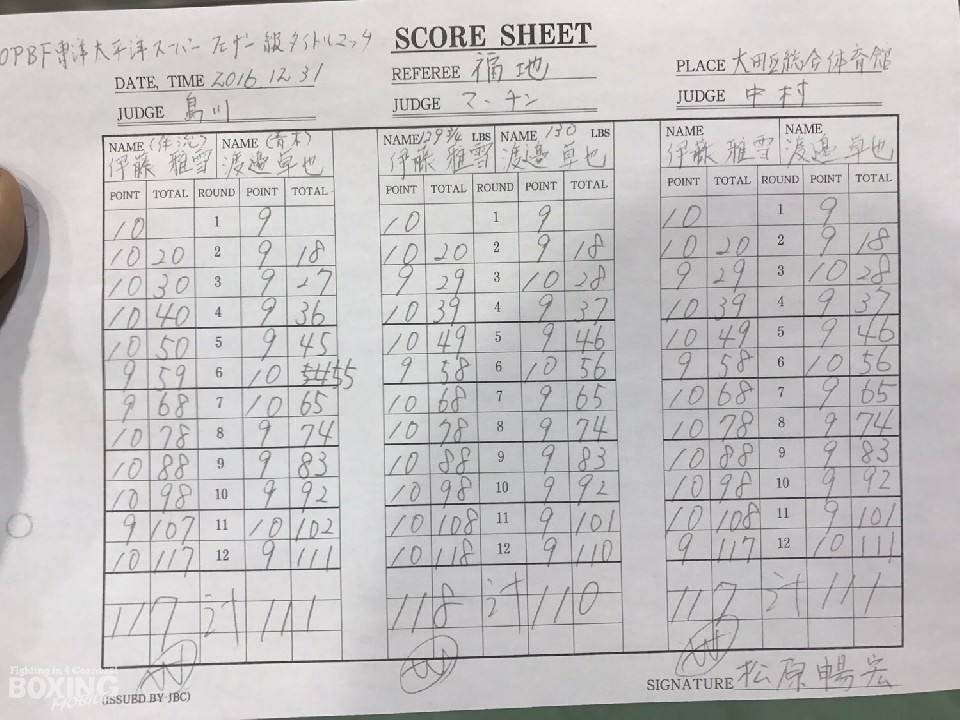 OPBF東洋太平洋スーパーフェザー級タイトルマッチ
SCORE SHEET
DATE, TIME 2016 12.31
REFEREE 福地
PLACE 大田区総合体育館
JUDGE 島川
JUDGE マーチン
JUDGE 中村
NAME (伴流) NAME (青木) NAME 129 3/4 LBS NAME 130 LBS NAME NAME
伊藤 雅雪 渡邉 卓也 伊藤 雅雪 渡邉 卓也 伊藤 雅雪 渡邉 卓也
POINT TOTAL ROUND POINT TOTAL POINT TOTAL ROUND POINT TOTAL POINT TOTAL ROUND POINT TOTAL
10 1 9 10 1 9 10 1 9
10 20 2 9 18 10 20 2 9 18 10 20 2 9 18
10 30 3 9 27 9 29 3 10 28 9 29 3 10 28
10 40 4 9 36 10 39 4 9 37 10 39 4 9 37
10 50 5 9 45 10 49 5 9 46 10 49 5 9 46
9 59 6 10 55 9 58 6 10 56 9 58 6 10 56
9 68 7 10 65 10 68 7 9 65 10 68 7 9 65
10 78 8 9 74 10 78 8 9 74 10 78 8 9 74
10 88 9 9 83 10 88 9 9 83 10 88 9 9 83
10 98 10 9 92 10 98 10 9 92 10 98 10 9 92
9 107 11 10 102 10 108 11 9 101 10 108 11 9 101
10 117 12 9 111 10 118 12 9 110 9 117 12 10 111
117 計 111 118 計 110 117 計 111
(ISSUED BY JBC)
SIGNATURE 松原暢宏
Fighting in 4 Corner
BOXING
MOBILE